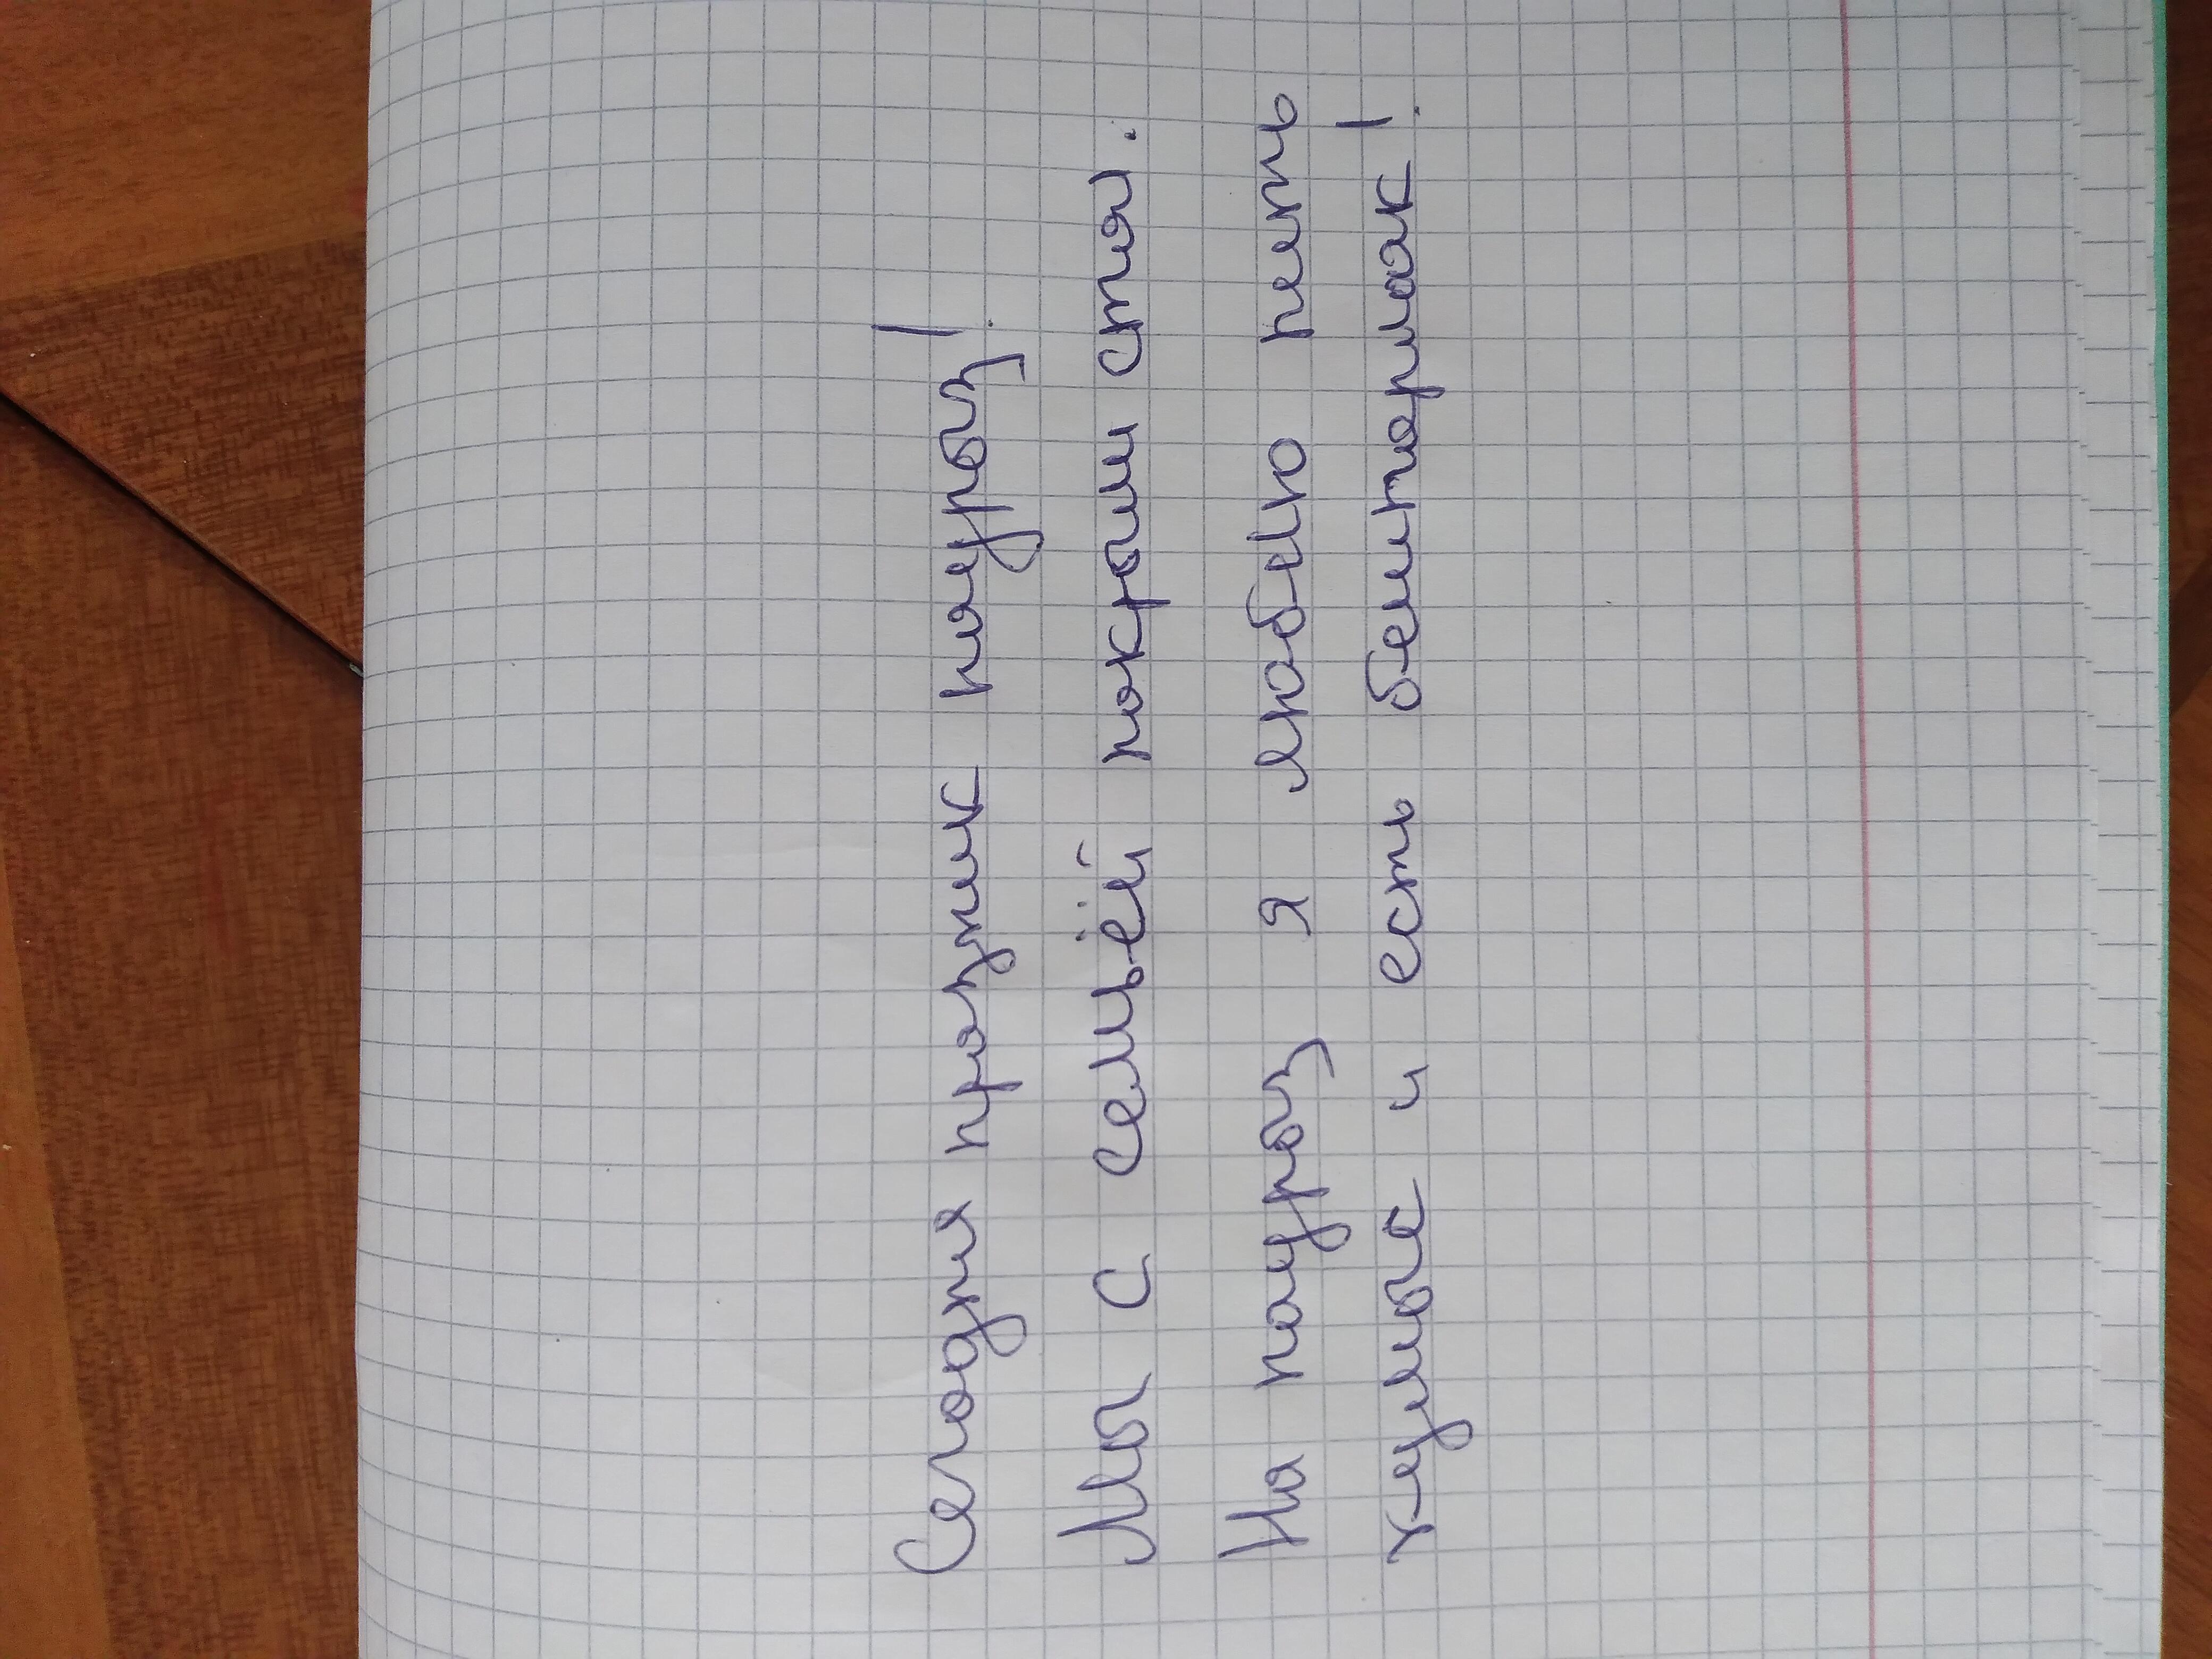 Сегодня празник наурыз!
Мы с семьёй покрыли стол.
На наурыз я люблю пить
кумыс и есть бешпармак!